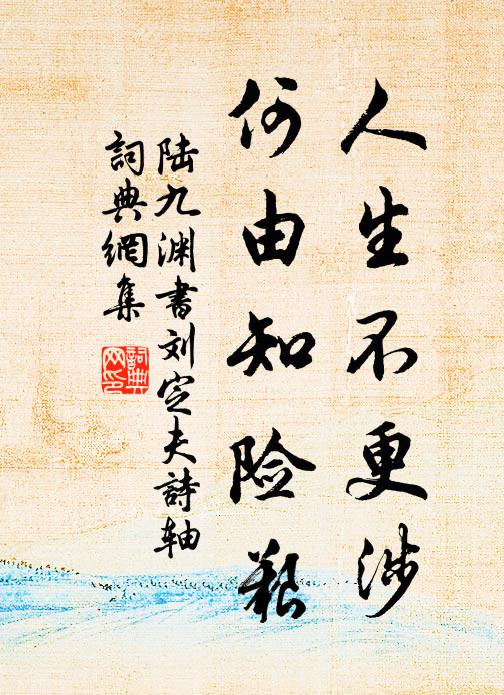 人生不更涉
何由知险艰
陆九渊书刘定夫詩轴
詞典網集
詞典
网印